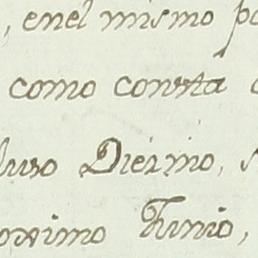 , enel mismo po
como consta
luso Diezmo, s
oximo Junio,